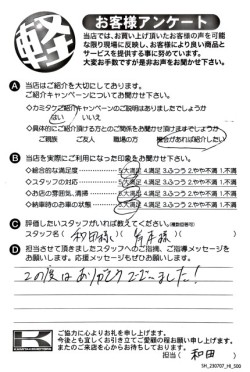 軽
お客様アンケート
当店では、お買い上げ頂いたお客様の声を可能
な限り現場に反映し、お客様により良い商品と
サービスを提供する事に努めています。
大変お手数ですが是非お声をお聞かせ下さい。
A 当店はご紹介を大切にしております。
ご紹介キャンペーンについてお聞かせ下さい。
◇カミタケご紹介キャンペーンのご説明はありましたでしょうか
はい いいえ
◇具体的にご紹介頂ける方とのご関係をお聞かせ頂けますでしょうか
ご親族 ご友人 職場の方 機会があれば紹介したい
B 当店を実際にご利用になった印象をお聞かせ下さい。
◇総合的な満足度 5.大満足 4.満足 3.ふつう 2.やや不満 1.不満
◇スタッフの対応 5.大満足 4.満足 3.ふつう 2.やや不満 1.不満
◇お店の雰囲気、清掃 5.大満足 4.満足 3.ふつう 2.やや不満 1.不満
◇納車時のお車の状態 5.大満足 4.満足 3.ふつう 2.やや不満 1.不満
C 評価したいスタッフがいれば教えてください。(複数回答可)
スタッフ名( 和田様 )( )( )
D 担当させて頂きましたスタッフへのご指摘、ご指導メッセージを
お願いします。応援メッセージもぜひお願いします。
この度はありがとうございました!
K
ご協力に心よりお礼を申し上げます。
今後とも宜しくお引き立てご愛顧の程お願い申し上げます。
またのご来店を心からお待ちしております。
担当( 和田 )
SH_230707_HI_500